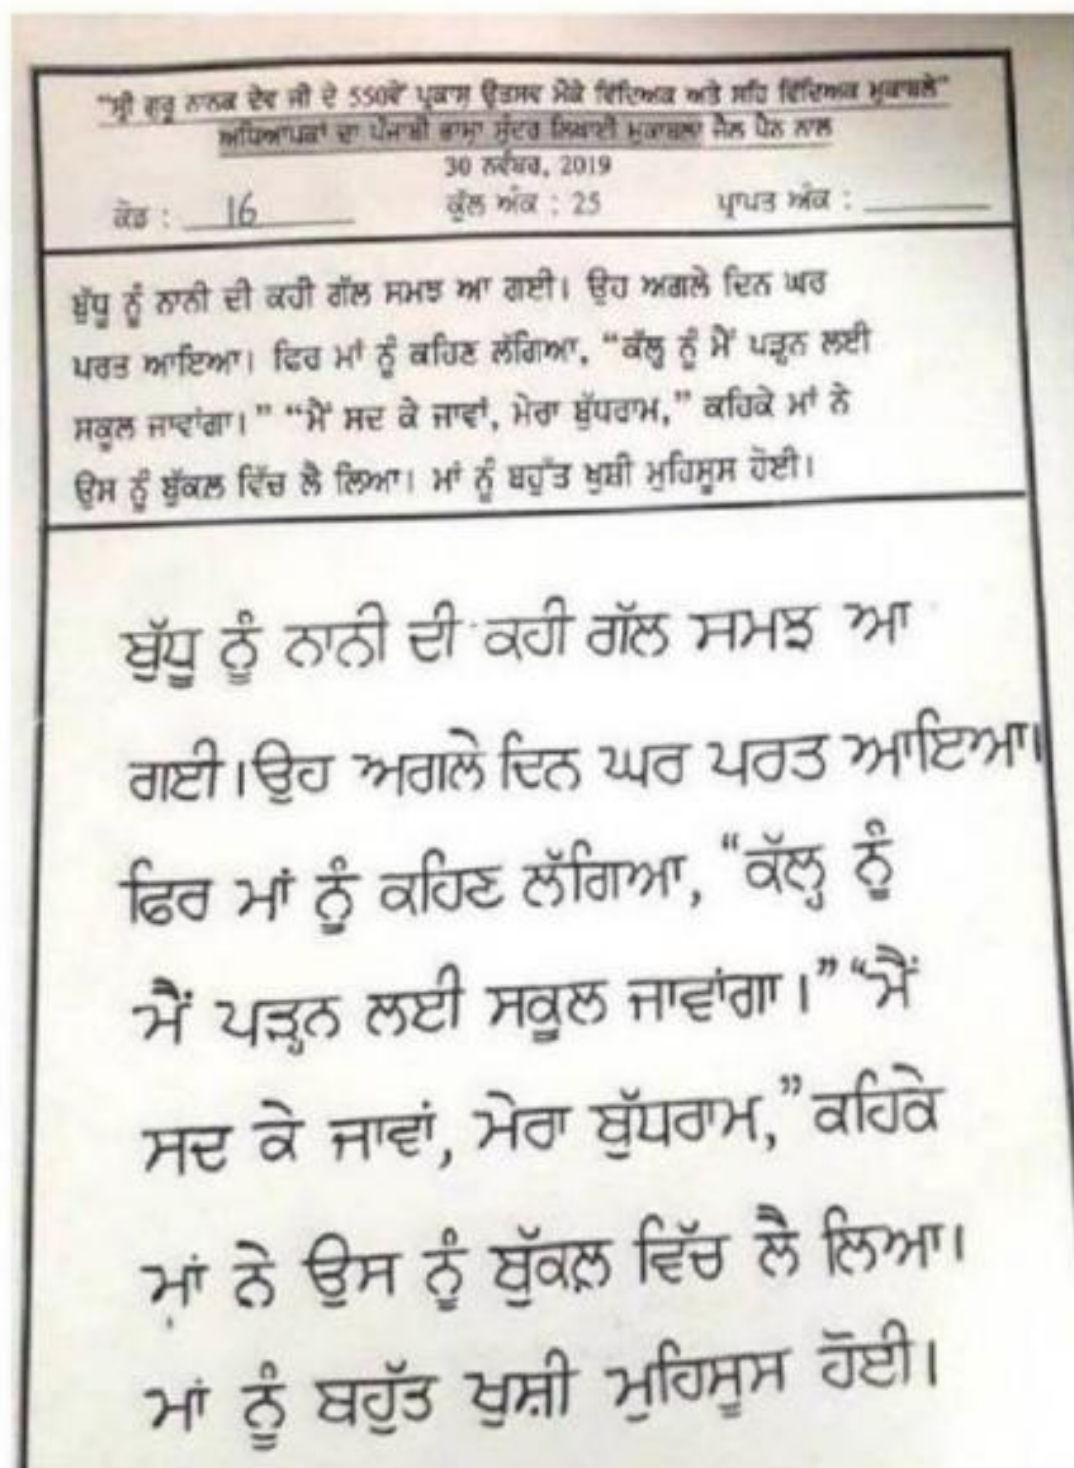 "ਸ੍ਰੀ ਗੁਰੂ ਨਾਨਕ ਦੇਵ ਜੀ ਦੇ 550ਵੇਂ ਪ੍ਰਕਾਸ਼ ਉਤਸਵ ਮੌਕੇ ਵਿੱਦਿਅਕ ਅਤੇ ਸਹਿ ਵਿੱਦਿਅਕ ਮੁਕਾਬਲੇ"
ਅਧਿਆਪਕਾਂ ਦਾ ਪੰਜਾਬੀ ਭਾਸ਼ਾ ਸੁੰਦਰ ਲਿਖਾਈ ਮੁਕਾਬਲਾ ਜੈੱਲ ਪੈੱਨ ਨਾਲ
30 ਨਵੰਬਰ, 2019
ਕੋਡ : 16 ਕੁੱਲ ਅੰਕ : 25 ਪ੍ਰਾਪਤ ਅੰਕ :
ਬੁੱਧੂ ਨੂੰ ਨਾਨੀ ਦੀ ਕਹੀ ਗੱਲ ਸਮਝ ਆ ਗਈ। ਉਹ ਅਗਲੇ ਦਿਨ ਘਰ
ਪਰਤ ਆਇਆ। ਫਿਰ ਮਾਂ ਨੂੰ ਕਹਿਣ ਲੱਗਿਆ, “ਕੱਲ੍ਹ ਨੂੰ ਮੈਂ ਪੜ੍ਹਨ ਲਈ
ਸਕੂਲ ਜਾਵਾਂਗਾ।” “ਮੈਂ ਸਦ ਕੇ ਜਾਵਾਂ, ਮੇਰਾ ਬੁੱਧਰਾਮ,” ਕਹਿਕੇ ਮਾਂ ਨੇ
ਉਸ ਨੂੰ ਬੁੱਕਲ ਵਿੱਚ ਲੈ ਲਿਆ। ਮਾਂ ਨੂੰ ਬਹੁੱਤ ਖੁਸ਼ੀ ਮੁਹਿਸੂਸ ਹੋਈ।
ਬੁੱਧੂ ਨੂੰ ਨਾਨੀ ਦੀ ਕਹੀ ਗੱਲ ਸਮਝ ਆ
ਗਈ। ਉਹ ਅਗਲੇ ਦਿਨ ਘਰ ਪਰਤ ਆਇਆ।
ਫਿਰ ਮਾਂ ਨੂੰ ਕਹਿਣ ਲੱਗਿਆ, “ਕੱਲ੍ਹ ਨੂੰ
ਮੈਂ ਪੜ੍ਹਨ ਲਈ ਸਕੂਲ ਜਾਵਾਂਗਾ।” “ਮੈਂ
ਸਦ ਕੇ ਜਾਵਾਂ, ਮੇਰਾ ਬੁੱਧਰਾਮ,” ਕਹਿਕੇ
ਮਾਂ ਨੇ ਉਸ ਨੂੰ ਬੁੱਕਲ਼ ਵਿੱਚ ਲੈ ਲਿਆ।
ਮਾਂ ਨੂੰ ਬਹੁੱਤ ਖੁਸ਼ੀ ਮੁਹਿਸੂਸ ਹੋਈ।